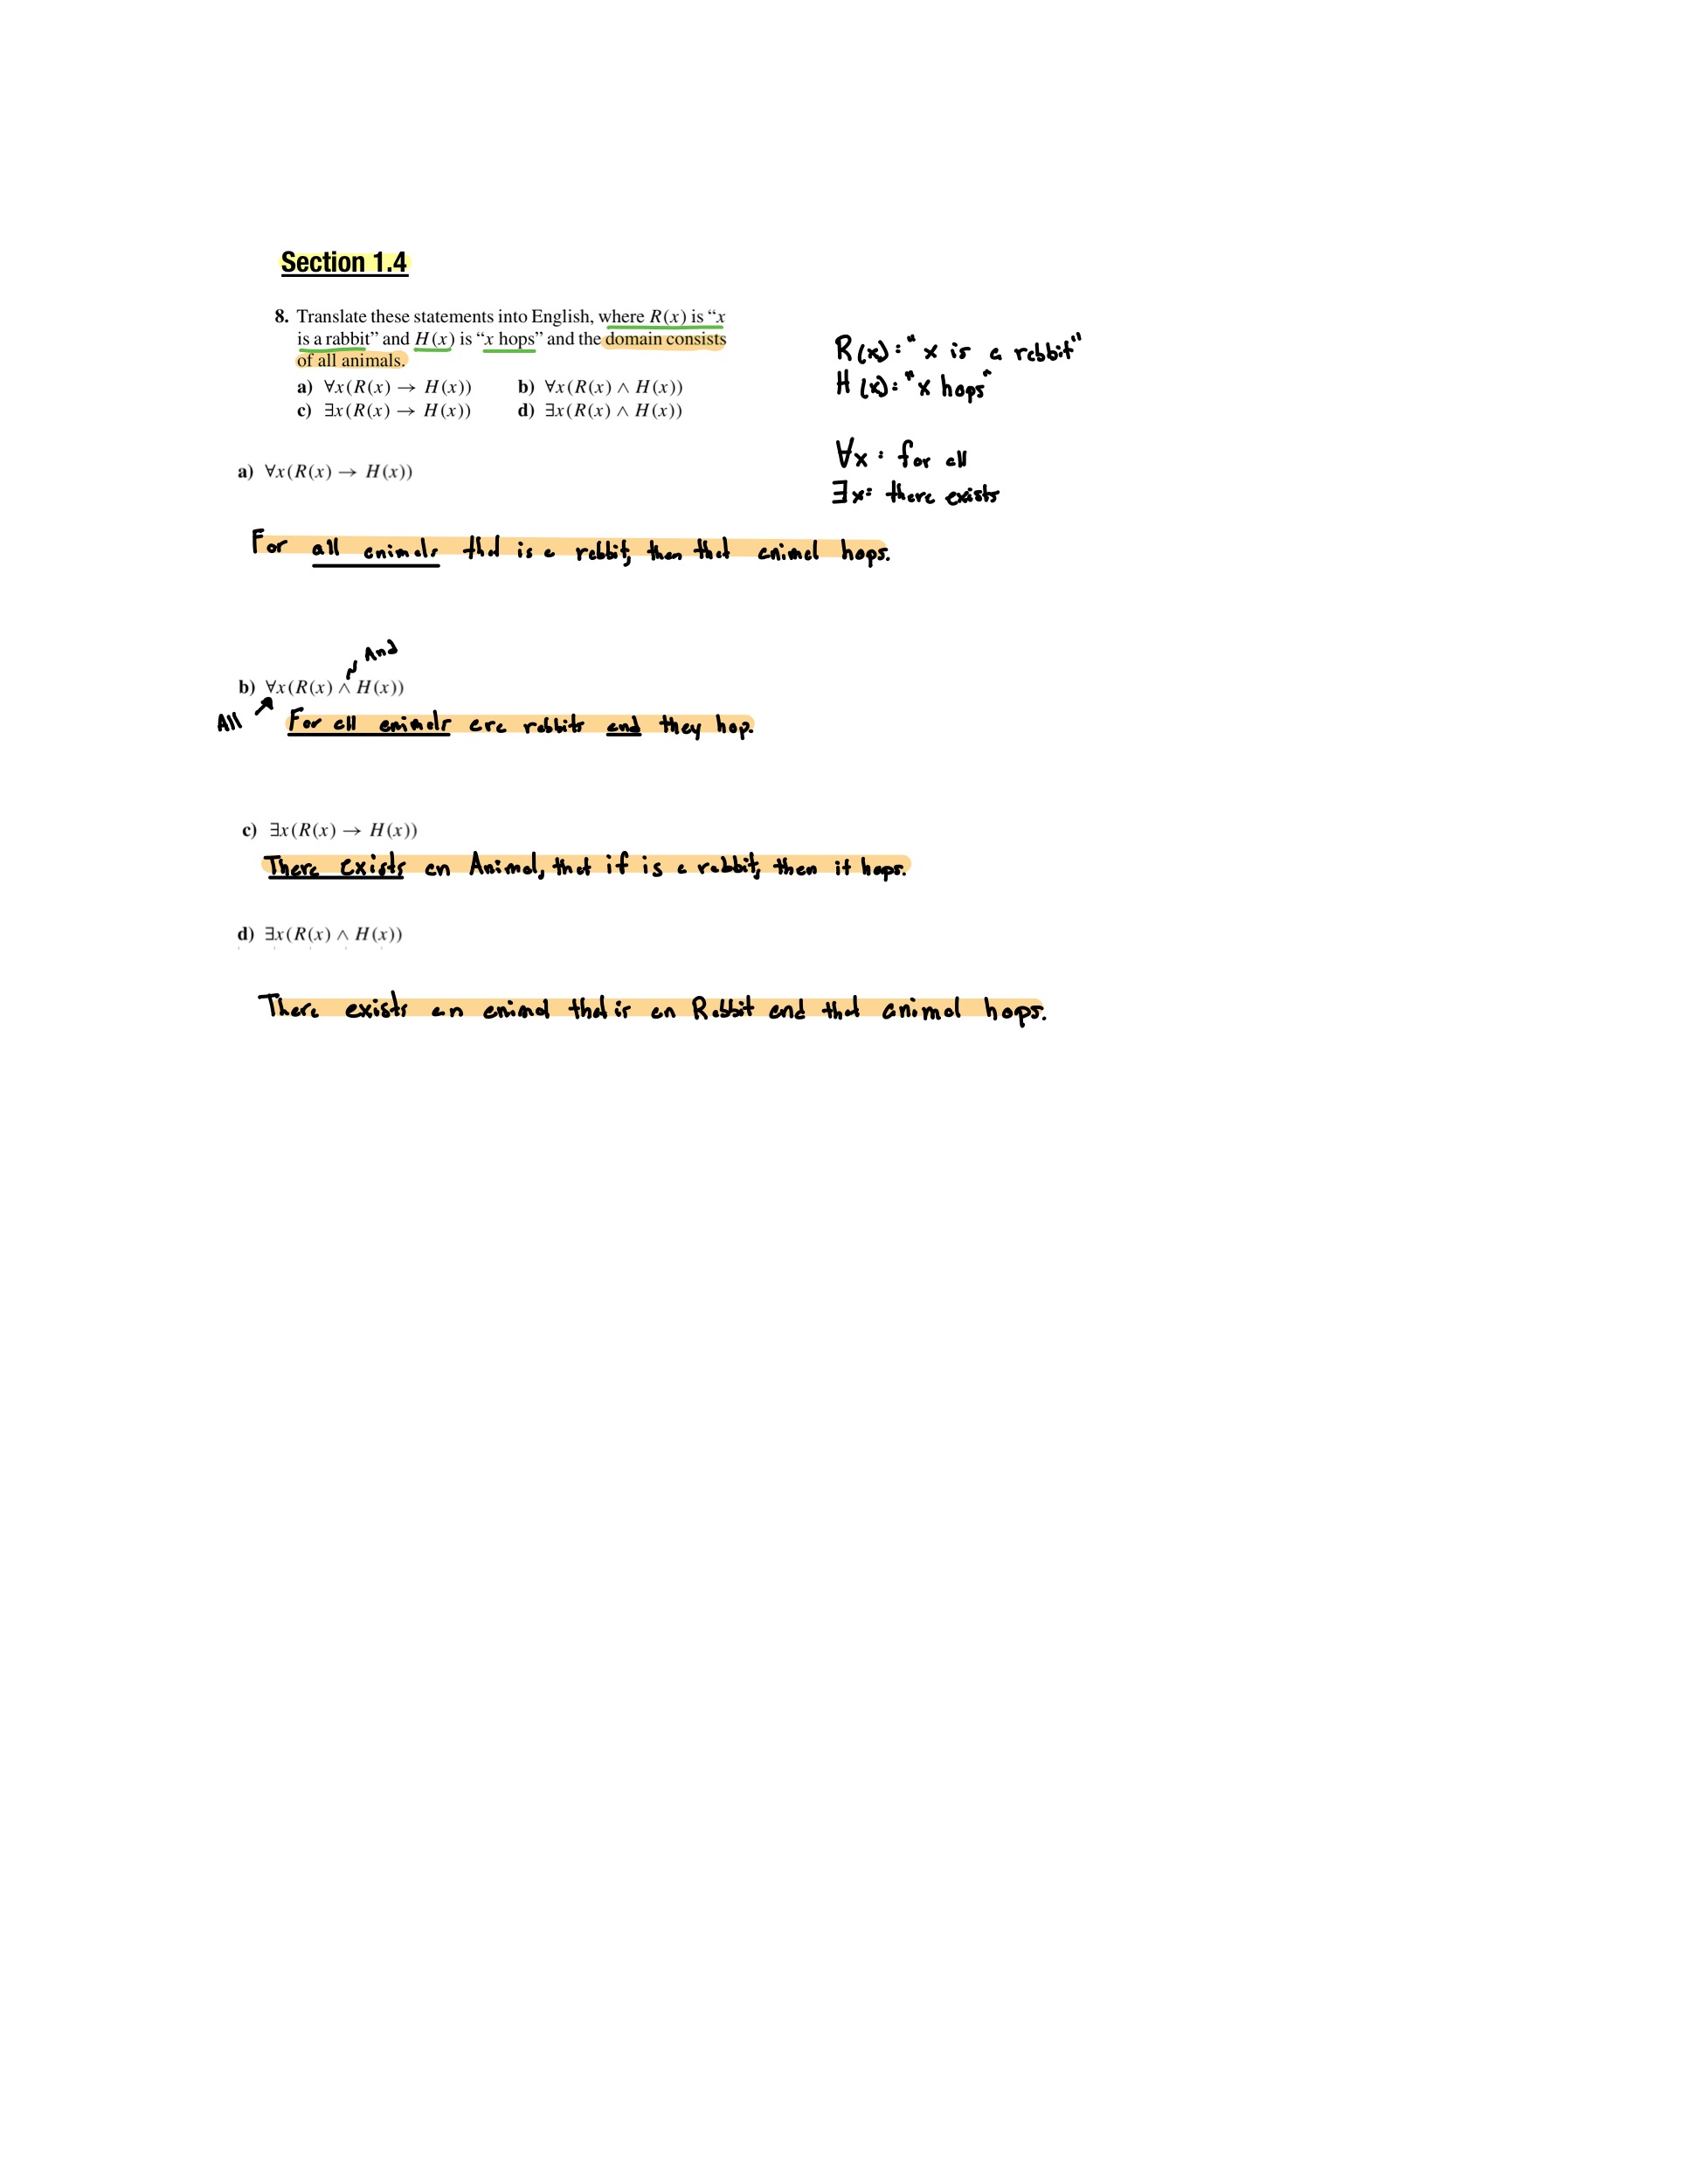 Section 1.4
8. Translate these statements into English, where R(x) is “x
is a rabbit” and H(x) is “x hops” and the domain consists
of all animals.
a) ∀x(R(x) → H(x)) b) ∀x(R(x) ∧ H(x))
c) ∃x(R(x) → H(x)) d) ∃x(R(x) ∧ H(x))
R(x): "x is a rabbit"
H(x): "x hops"
∀x: for all
∃x: there exists
a) ∀x(R(x) → H(x))
For all animals that is a rabbit, then that animal hops.
And
b) ∀x(R(x) ∧ H(x))
All
For all animals are rabbits and they hop.
c) ∃x(R(x) → H(x))
There exists an Animal, that if is a rabbit, then it hops.
d) ∃x(R(x) ∧ H(x))
There exists an animal that is an Rabbit and that animal hops.